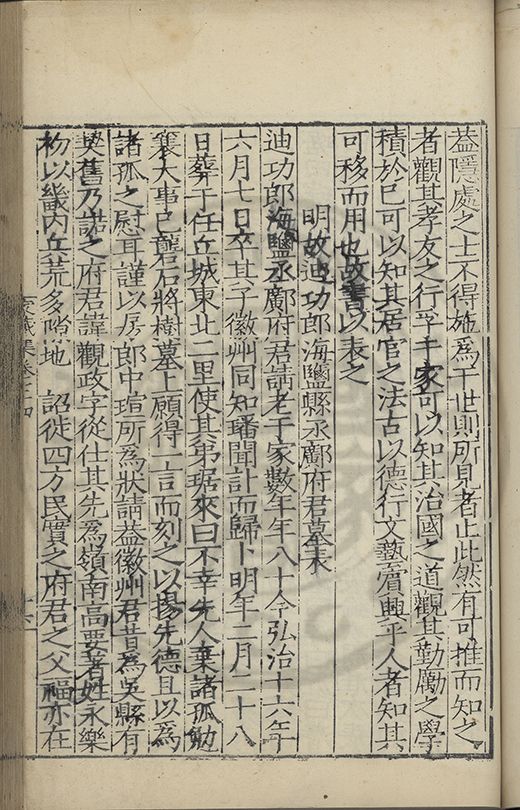 蓋隱處之士不得施爲于世則所見者止此然有可推而知之
者觀其孝友之行孚于家可以知其治國之道觀其勤勵之學
積於巳可以知其居官之法古以德行文藝賔興乎人者知其
可移而用也故書以表之
明故迪功郎海鹽縣丞鄺府君墓表
迪功郎海鹽丞鄺府君請老于家數年年八十今弘治十六年
六月七日卒其子徽州同知璠聞訃而歸卜明年二月二十八
日葬于任丘城東北二里使其弟琚來曰不幸先人棄諸孤勉
襄大事已礱石將樹墓上願得一言而刻之以揚先德且以爲
諸孤之慰耳謹以房郎中瑄所爲狀請蓋徽州君昔爲吳縣有
契舊乃諾之府君諱觀政字從仕其先爲嶺南高要著姓永樂
初以畿内丘荒多隙地 詔徙四方民實之府君之父福亦在